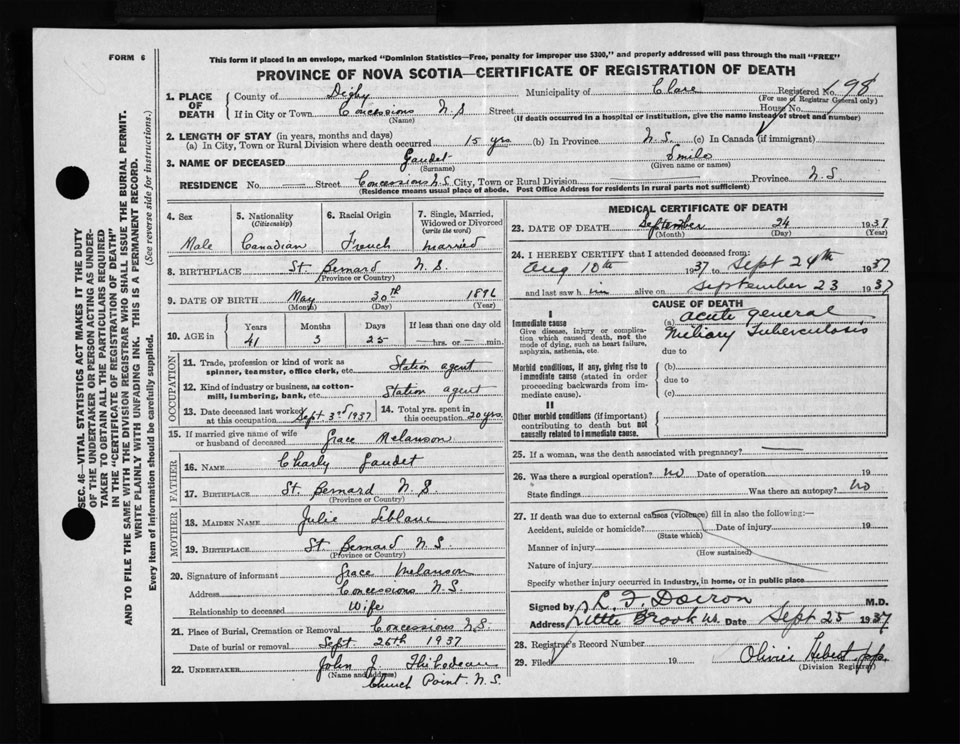 FORM 6
This form if placed in an envelope, marked "Dominion Statistics—Free, penalty for improper use $300," and properly addressed will pass through the mail "FREE"
PROVINCE OF NOVA SCOTIA—CERTIFICATE OF REGISTRATION OF DEATH
SEC. 46—VITAL STATISTICS ACT MAKES IT THE DUTY
OF THE UNDERTAKER OR PERSON ACTING AS UNDER-
TAKER TO OBTAIN ALL THE PARTICULARS REQUIRED
IN THE "CERTIFICATE OF REGISTRATION OF DEATH"
AND TO FILE THE SAME WITH THE DIVISION REGISTRAR WHO SHALL ISSUE THE BURIAL PERMIT.
WRITE PLAINLY WITH UNFADING INK. THIS IS A PERMANENT RECORD.
Every item of information should be carefully supplied. (See reverse side for instructions.)
1. PLACE OF DEATH County of Digby Municipality of Clare Registered No. 198
(For use of Registrar General only)
If in City or Town Concessions N S Street House No.
(Name) (If death occurred in a hospital or institution, give the name instead of street and number)
2. LENGTH OF STAY (in years, months and days)
(a) In City, Town or Rural Division where death occurred 15 yrs (b) In Province N.S. (c) In Canada (if immigrant)
3. NAME OF DECEASED Gaudet
(Surname) (Given name or names)
RESIDENCE No. — Street Concessions N.S City, Town or Rural Division — Province N.S.
(Residence means usual place of abode. Post Office Address for residents in rural parts not sufficient)
4. Sex 5. Nationality (Citizenship) 6. Racial Origin 7. Single, Married, Widowed or Divorced (write the word)
Male Canadian French married
8. BIRTHPLACE St. Bernard N.S.
(Province or Country)
9. DATE OF BIRTH May 30th 1896
(Month) (Day) (Year)
10. AGE in Years Months Days If less than one day old
41 3 25 —hrs. or —min.
OCCUPATION
11. Trade, profession or kind of work as spinner, teamster, office clerk, etc. Station agent
12. Kind of industry or business, as cotton-mill, lumbering, bank, etc. Station agent
13. Date deceased last worked at this occupation Sept 3rd 1937 14. Total yrs. spent in this occupation 20 yrs.
15. If married give name of wife or husband of deceased Grace Melanson
FATHER
16. NAME Charly Gaudet
17. BIRTHPLACE St. Bernard N.S.
(Province or Country)
MOTHER
18. MAIDEN NAME Julie Leblanc
19. BIRTHPLACE St Bernard N.S.
(Province or Country)
20. Signature of informant Grace Melanson
Address Concessions N.S.
Relationship to deceased Wife
21. Place of Burial, Cremation or Removal Concessions N.S.
Date of burial or removal Sept. 26th 1937
22. UNDERTAKER John J. Thibodeau
(Name and address) Church Point N.S.
MEDICAL CERTIFICATE OF DEATH
23. DATE OF DEATH September 24 1937
(Month) (Day) (Year)
24. I HEREBY CERTIFY that I attended deceased from:
Aug 10th 1937 to Sept 24th 1937
and last saw h im alive on September 23 1937
CAUSE OF DEATH
I
Immediate cause
Give disease, injury or complication which caused death, not the mode of dying, such as heart failure, asphyxia, asthenia, etc.
(a) acute general
Miliary Tuberculosis
due to
Morbid conditions, if any, giving rise to immediate cause (stated in order proceeding backwards from immediate cause).
(b)
due to
(c)
II
Other morbid conditions (if important) contributing to death but not causally related to immediate cause.
25. If a woman, was the death associated with pregnancy? —
26. Was there a surgical operation? No Date of operation 19
State findings Was there an autopsy? No
27. If death was due to external causes (violence) fill in also the following:—
Accident, suicide or homicide? Date of injury 19
(State which)
Manner of injury
(How sustained)
Nature of injury
Specify whether injury occurred in industry, in home, or in public place
Signed by L. F. Doiron M.D.
Address Little Brook N.S. Date Sept 25 1937
28. Registrar's Record Number
29. Filed 19 Olivier Hebert p.p.
(Division Registrar)